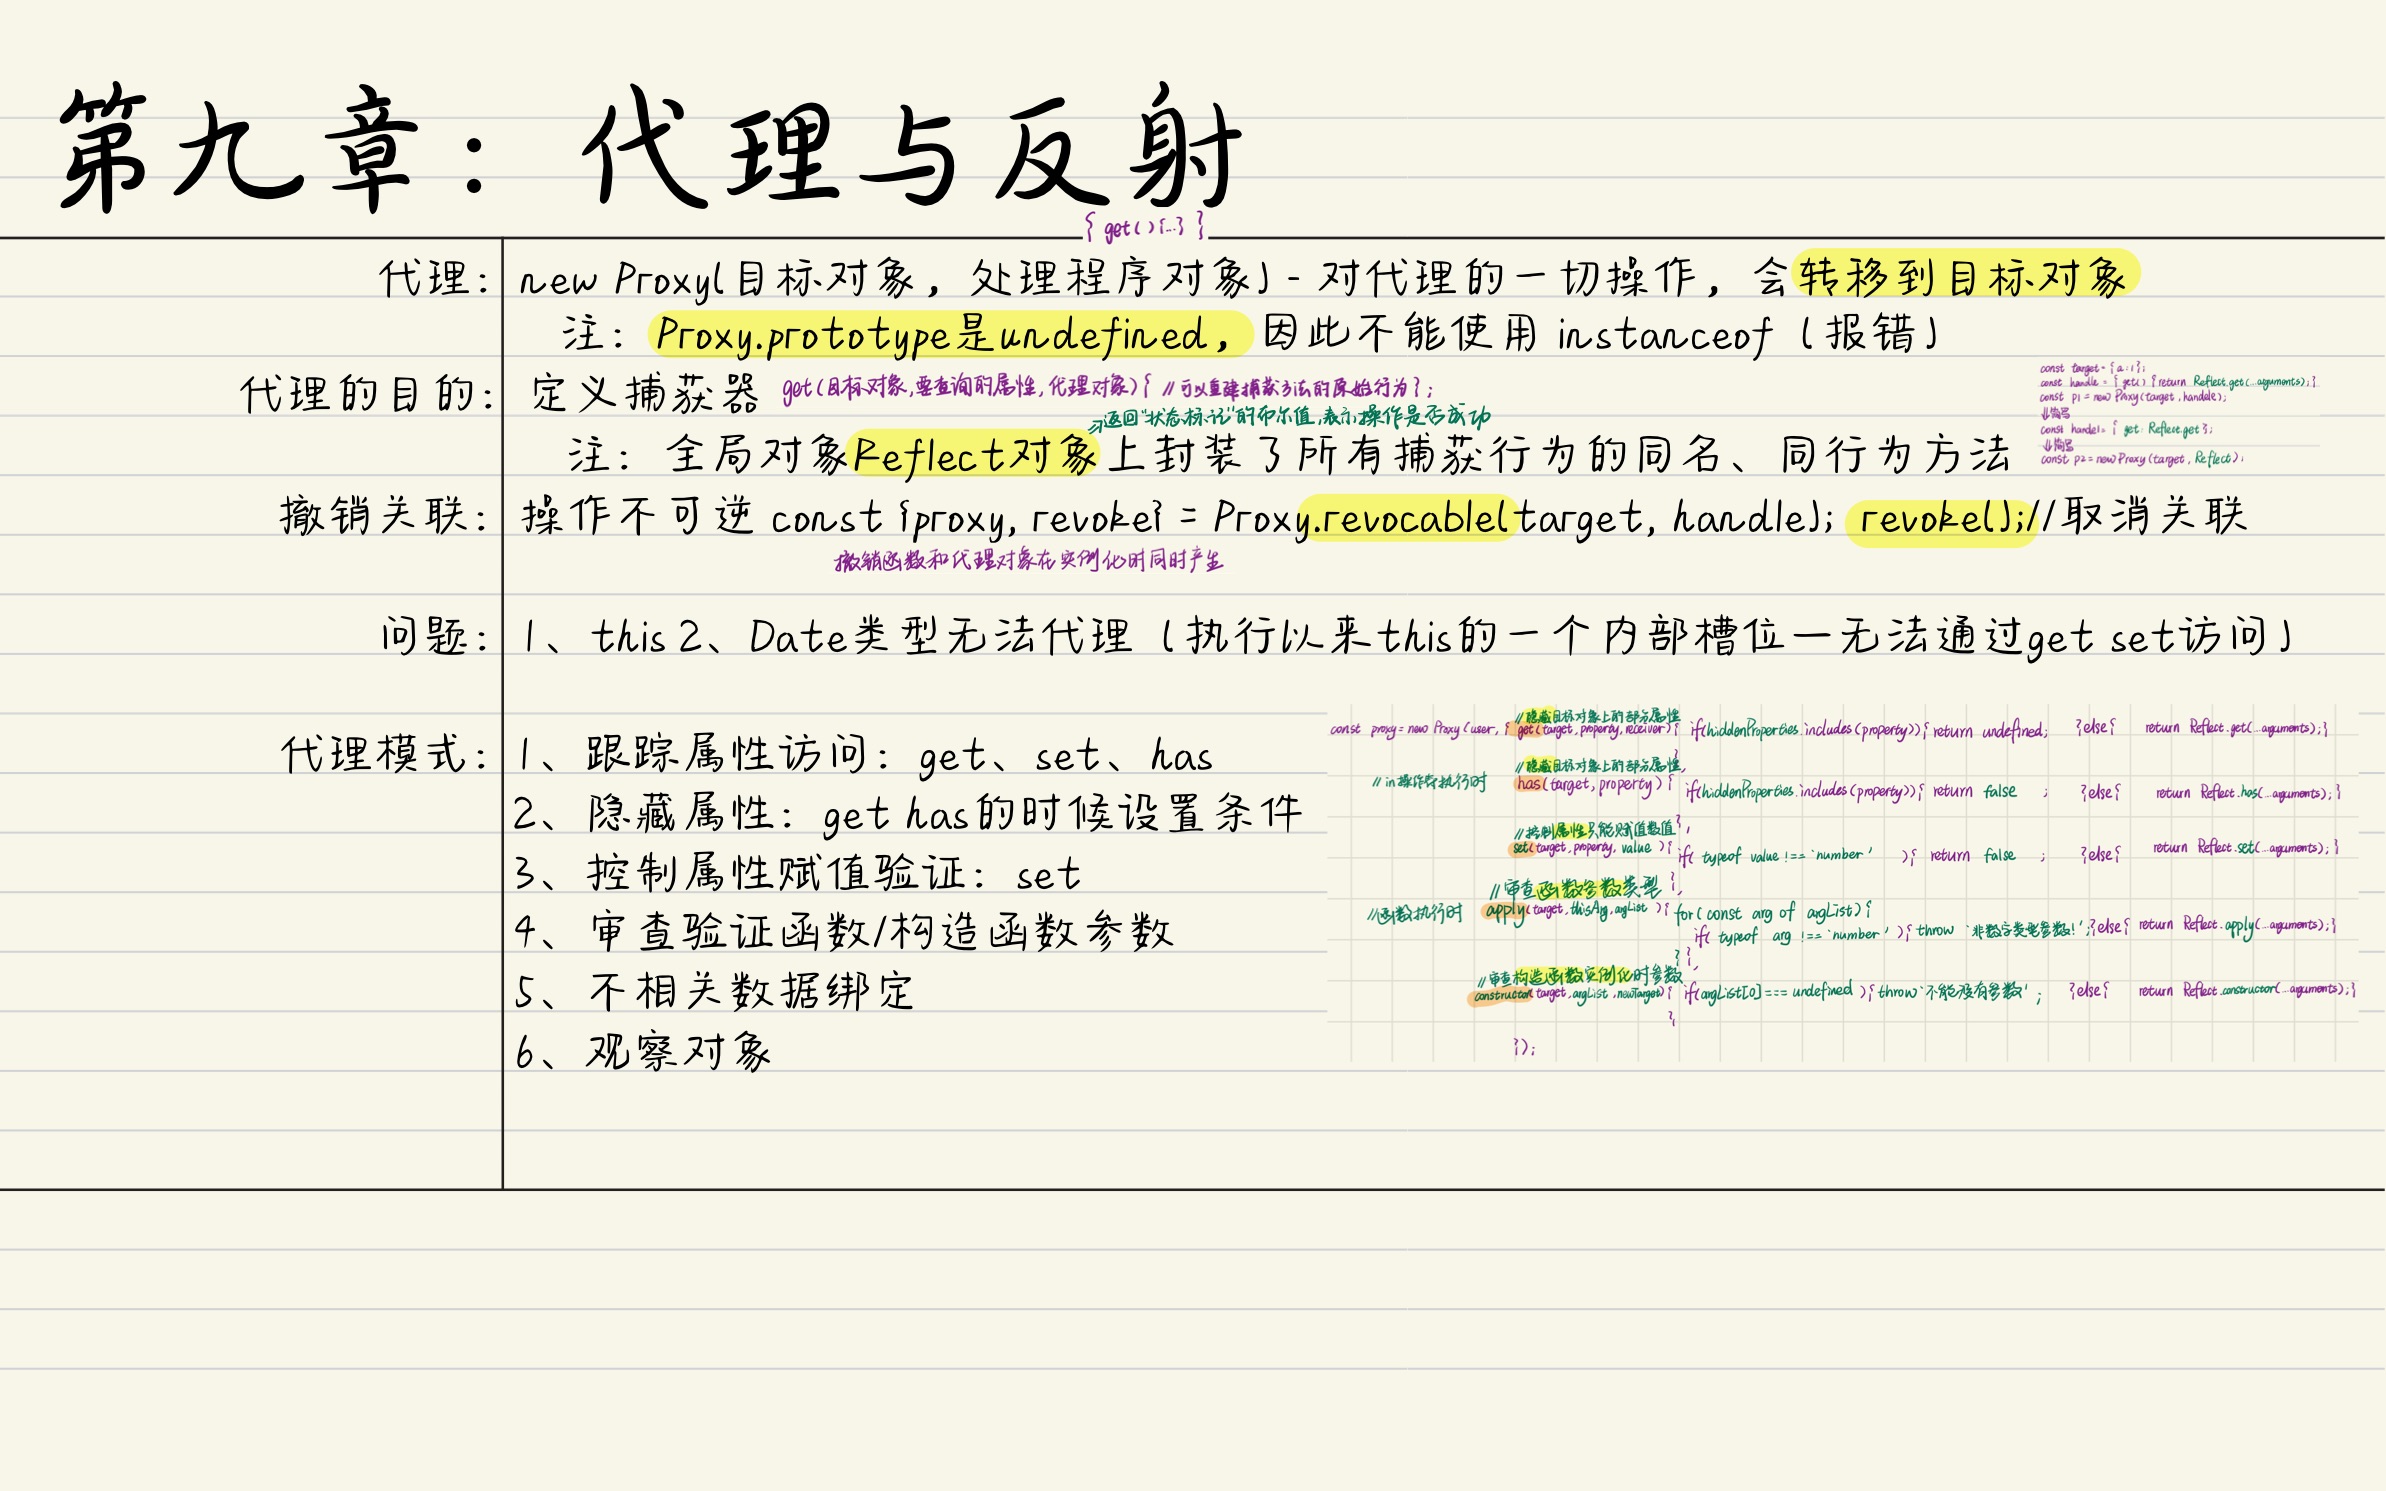 第九章：代理与反射
{ get(){...} }
代理：new Proxy(目标对象，处理程序对象) - 对代理的一切操作，会转移到目标对象
注：Proxy.prototype是undefined，因此不能使用 instanceof（报错）
代理的目的：定义捕获器 get(目标对象,要查询的属性,代理对象){ //可以重建捕获方法的原始行为};
→返回"状态标记"的布尔值,表示操作是否成功
注：全局对象Reflect对象上封装了所有捕获行为的同名、同行为方法
const target = {a:1};
const handle = { get() {return Reflect.get(...arguments);}
const p1 = new Proxy(target,handle);
↓简写
const handel = { get: Reflect.get };
↓简写
const p2 = new Proxy(target, Reflect);
撤销关联：操作不可逆 const {proxy, revoke} = Proxy.revocable(target, handle); revoke();//取消关联
撤销函数和代理对象在实例化时同时产生
问题：1、this 2、Date类型无法代理（执行以来this的一个内部槽位—无法通过get set访问）
代理模式：1、跟踪属性访问：get、set、has
2、隐藏属性：get has的时候设置条件
3、控制属性赋值验证：set
4、审查验证函数/构造函数参数
5、不相关数据绑定
6、观察对象
//隐藏目标对象上的部分属性
const proxy = new Proxy (user, { get(target, property, receiver){ if(hiddenProperties.includes(property)){ return undefined; }else{ return Reflect.get(...arguments);}
},
//隐藏目标对象上的部分属性
//in操作符执行时 has(target, property) { if(hiddenProperties.includes(property)){ return false ; }else{ return Reflect.has(...arguments);}
},
//控制属性只能赋值数值
set(target, property, value ){ if( typeof value !== 'number' ){ return false ; }else{ return Reflect.set(...arguments);}
},
//审查函数参数类型
//函数执行时 apply(target, thisArg, argList ){ for( const arg of argList){
if( typeof arg !== 'number' ){ throw '非数字类型参数!';}else{ return Reflect.apply(...arguments);}
} },
//审查构造函数实例化时参数
constructor(target, argList, newTarget){ if(argList[0] === undefined ){ throw '不能没有参数' ; }else{ return Reflect.constructor(...arguments);}
}
});